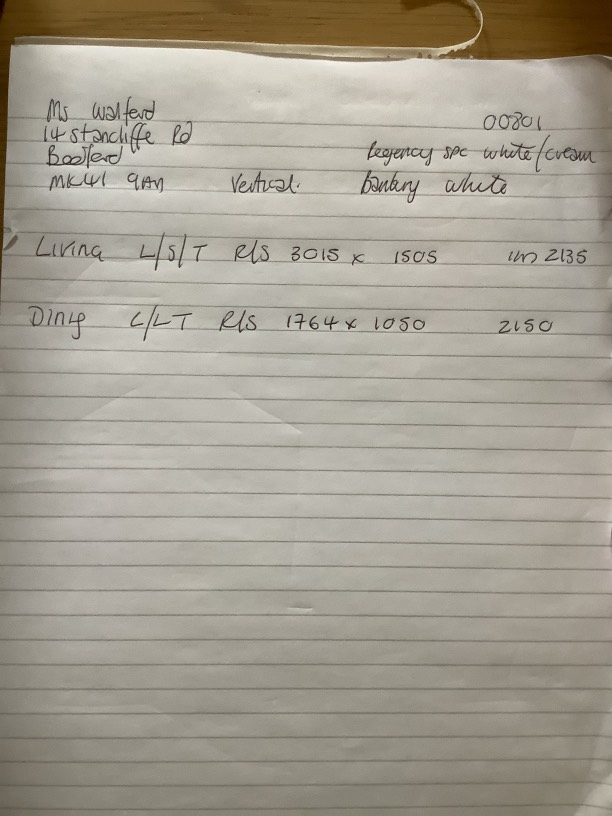 Ms Walferd
00801
14 Stancliffe Rd
Bedford
Regency spc white/cream
MK41 9AN Vertical. Banbury white
Living L/S/T R/S 3015 x 1505 2135
Dinig L/LT R/S 1764 x 1050 2150